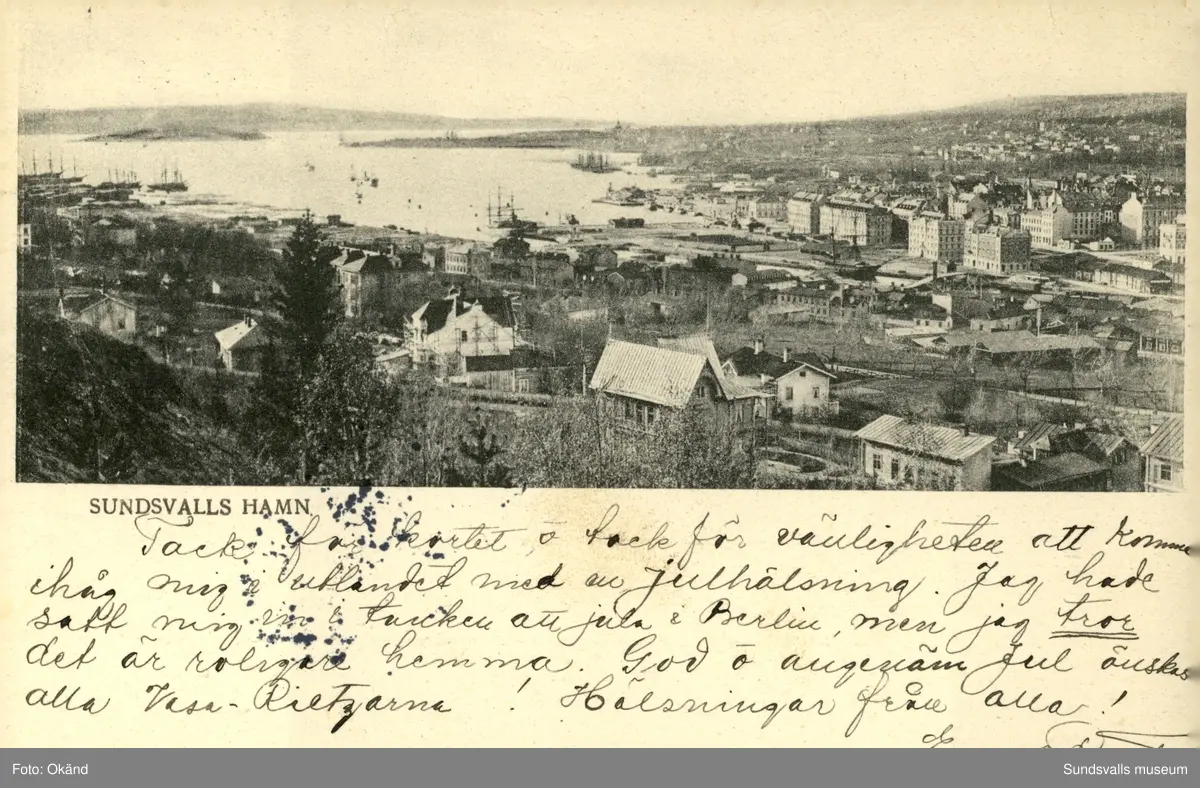 SUNDSVALLS HAMN
Tack för kortet, o tack för vänligheten att komma
ihåg mig i utlandet med en julhälsning. Jag hade
satt mig in i tanken att jula i Berlin, men jag tror
det är roligare hemma. God o angenäm Jul önskas
alla Vasa-Rietzarna ! Hälsningar från alla !
Foto: Okänd
Sundsvalls museum